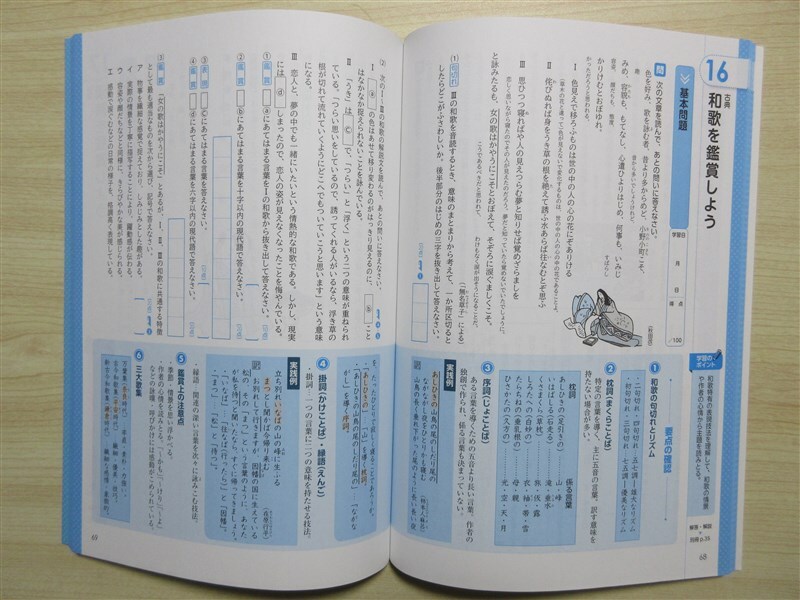 16
古典
和歌を鑑賞しよう
基本問題
学習日
月
日
得点
/100
学習のポイント
和歌特有の表現技法を理解して、和歌の情景
や作者の心情から主題を読みとる。
解答・解説
別冊p.36
問 次の文章を読んで、あとの問いに答えなさい。
色を好み、歌を詠む者、昔より多からめど、小野小町こそ、
みめ、容貌も、もてなし、心遣ひよりはじめ、何事も、いみじ
かりけむとおぼゆれ。
Ⅰ 色見えで移ろふものは世の中の人の心の花にぞありける
Ⅱ 侘びぬれば身をうき草の根を絶えて誘ふ水あらば住なむとぞ思ふ
Ⅲ 思ひつつ寝ればや人の見えつらむ夢と知りせば覚めざらましを
と詠みたるも、女の歌はかやうにこそとおぼえて、そぞろに涙ぐましくこそ。
(「無名草子」による)
(1) 句切れ Ⅲの和歌を音読するとき、意味のまとまりから考えて、一か所区切ると
したらどこがふさわしいか。後半部分のはじめの三字を抜き出して答えなさい。
要点の確認
1 和歌の句切れとリズム
・二句切れ・四句切れ 五七調…雄大なリズム
・初句切れ・三句切れ 七五調…優美なリズム
2 枕詞(まくらことば)
特定の言葉を導く、主に五音の言葉。訳す意味を
持たない場合が多い。
枕詞
係る言葉
あしひきの(足引きの)…山・峰
いはばしる(石走る)…滝・垂水
くさまくら(草枕)…旅・浅・露
しろたへの(白妙の)…衣・袖・帯・雪
たらちねの(垂乳根の)…母・親
ひさかたの(久方の)…光・空・天・月
3 序詞(じょことば)
ある言葉を導くための五音より長い言葉。作者の
独創で作られ、係る言葉も決まっていない。
実践例
あしひきの山鳥の尾のしだり尾の
ながながし夜をひとりかも寝む
(柿本人麻呂)
68
(2) 次のⅠ~Ⅲの和歌の解説文を読んで、あとの問いに答えなさい。
Ⅰ aの色はあせて移り変わるのがはっきり見えるのに、bこと
はなかなか捉えられないことを詠んでいる。
Ⅱ 「うき」は、cで、「つらい」と「浮く」という二つの意味が重ねられ
ている。「つらい思いをしているので、誘ってくれる人がいるなら、浮き草の
根が切れて流れていくようにどこへでもついていこうと思います」という意味
になる。
Ⅲ 恋人と、夢の中でも一緒にいたいという情熱的な和歌である。しかし、現実
にはdしまったので、恋人の姿が見えなくなったことを悔やんでいる。
① 鑑賞 aにあてはまる言葉をⅠの和歌から抜き出して答えなさい。
② 鑑賞 bにあてはまる言葉を十字以内の現代語で答えなさい。
③ 表現 cにあてはまる言葉を答えなさい。
④ 鑑賞 dにあてはまる言葉を六字以内の現代語で答えなさい。
(3) 鑑賞 「女の歌はかやうにこそ」とあるが、Ⅰ、Ⅱ、Ⅲの和歌に共通する特徴
として最も適当なものを次から選び、記号で答えなさい。
ア 物事を繊細な感覚で捉えており、しみじみとした趣がある。
イ 実際の情景を丁寧に描写することにより、躍動感が伝わる。
ウ 容姿や顔だちなどと同様に、きらびやかな美が感じられる。
エ 感動で涙ぐむなどの日常の様子を、格調高く表現している。
4 掛詞(かけことば)・縁語(えんご)
・掛詞…一つの言葉に二つの意味を持たせる技法。
実践例
立ち別れいなばの山の峰に生ふる
まつとし聞かば今帰り来む
(在原行平)
・縁語…関連の深い言葉を次々に詠みこむ技法。
5 鑑賞上の注意点
6 三大歌集
69